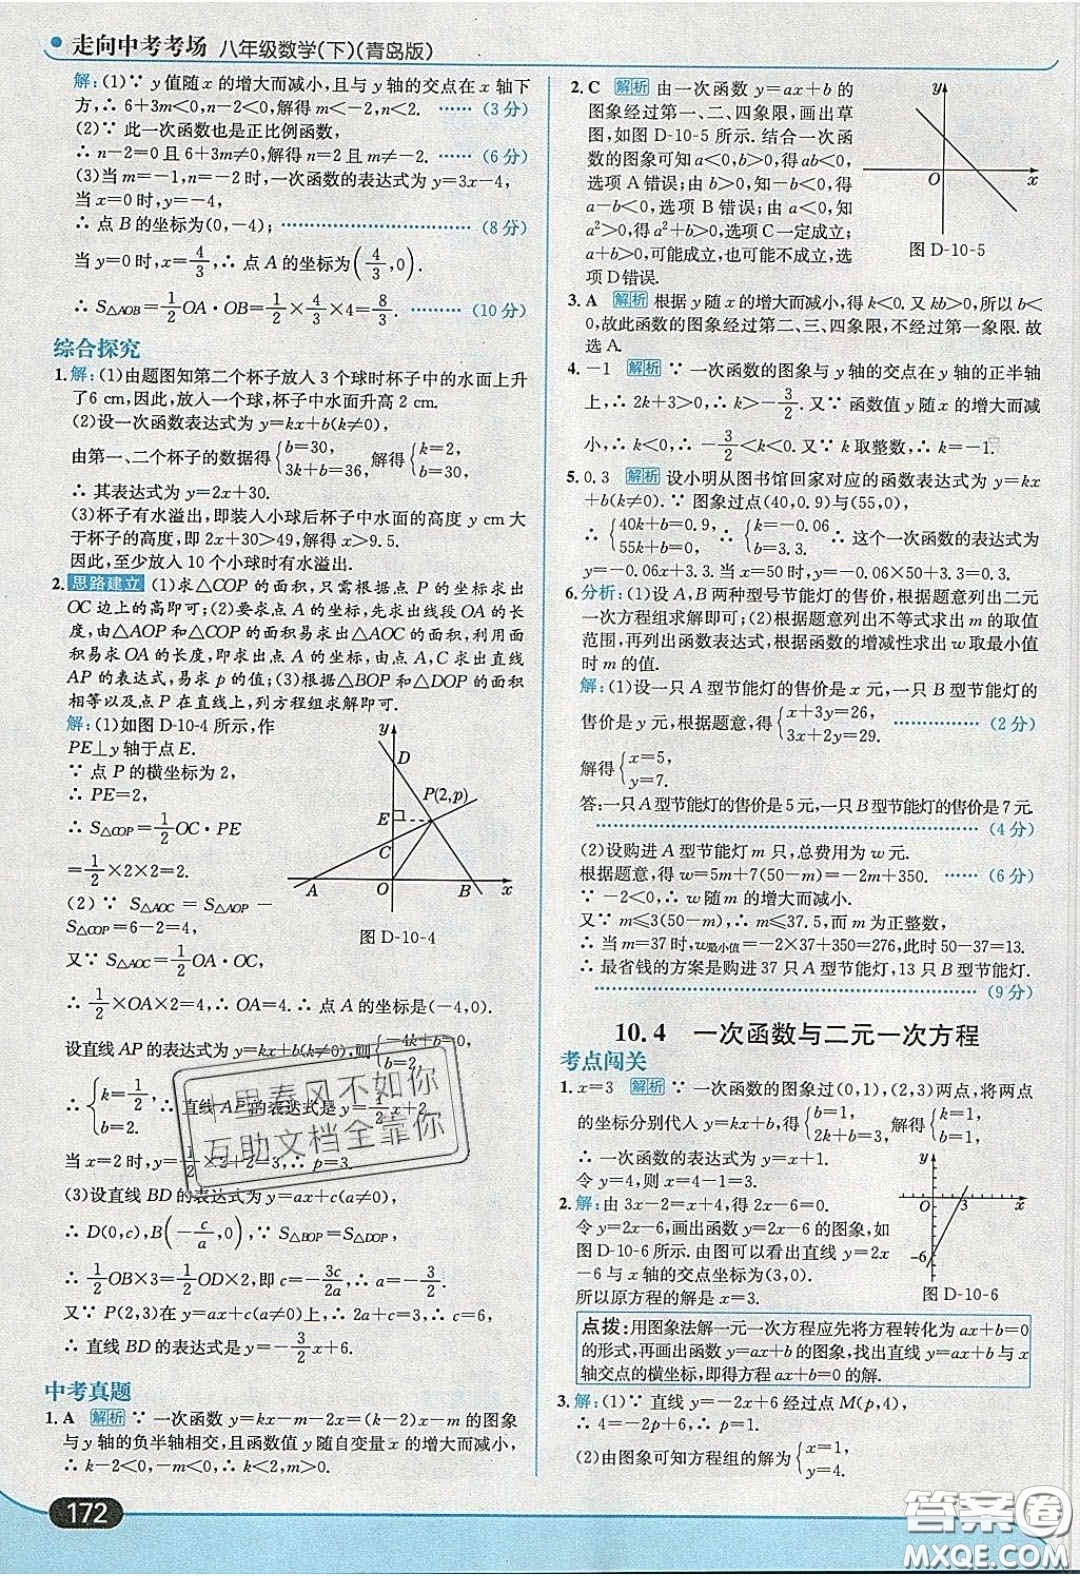 走向中考考场 八年级数学(下)(青岛版)
解:(1)∵ y值随x的增大而减小,且与y轴的交点在x轴下
方,∴ 6+3m<0,n-2<0,解得m<-2,n<2. ……(3分)
(2)∵ 此一次函数也是正比例函数,
∴ n-2=0且6+3m≠0,解得n=2且m≠-2. ……(6分)
(3)当m=-1,n=-2时,一次函数的表达式为y=3x-4,
当x=0时,y=-4,
∴ 点B的坐标为(0,-4); ……(8分)
当y=0时,x=4/3,∴ 点A的坐标为(4/3,0).
∴ S△AOB=1/2OA·OB=1/2×4/3×4=8/3. ……(10分)
综合探究
1.解:(1)由题图知第二个杯子放入3个球时杯子中的水面上升
了6 cm,因此,放入一个球,杯子中水面升高2 cm.
(2)设一次函数表达式为y=kx+b(k≠0),
由第一、二个杯子的数据得{b=30, 3k+b=36, 解得{k=2, b=30.
∴ 其表达式为y=2x+30.
(3)杯子有水溢出,即装入小球后杯子中水面的高度y cm大
于杯子的高度,即2x+30>49,解得x>9.5.
因此,至少放入10个小球时有水溢出.
2.思路建立 (1)求△COP的面积,只需根据点P的坐标求出
OC边上的高即可;(2)要求点A的坐标,先求出线段OA的长
度,由△AOP和△COP的面积易求出△AOC的面积,利用面
积易求OA的长度,即求出点A的坐标,由点A,C求出直线
AP的表达式,易求p的值;(3)根据△BOP和△DOP的面积
相等以及点P在直线上,列方程组求解即可.
解:(1)如图D-10-4所示,作
PE⊥y轴于点E.
∵ 点P的横坐标为2,
∴ PE=2,
∴ S△COP=1/2OC·PE
=1/2×2×2=2.
(2)∵ S△AOC=S△AOP-
S△COP=6-2=4,
又∵ S△AOC=1/2OA·OC,
y
D
P(2,p)
E
C
A O B x
图D-10-4
∴ 1/2×OA×2=4,∴ OA=4.∴ 点A的坐标是(-4,0).
设直线AP的表达式为y=kx+b(k≠0),∴{-4k+b=0, b=2,
∴{k=1/2, b=2. ∴ 直线AP的表达式是y=1/2x+2,
当x=2时,y=1/2×2+2=3,∴ p=3.
(3)设直线BD的表达式为y=ax+c(a≠0),
∴ D(0,c),B(-c/a,0),∵ S△BOP=S△DOP,
∴ 1/2OB×3=1/2OD×2,即c=-3c/2a,∴ a=-3/2.
又∵ P(2,3)在y=ax+c(a≠0)上,∴ 2a+c=3,∴ c=6,
∴ 直线BD的表达式是y=-3/2x+6.
中考真题
1. A 解析 ∵ 一次函数y=kx-m-2x=(k-2)x-m的图象
与y轴的负半轴相交,且函数值y随自变量x的增大而减小,
∴ k-2<0,-m<0,∴ k<2,m>0.
172
2. C 解析 由一次函数y=ax+b的
图象经过第一、二、四象限,画出草
图,如图D-10-5所示. 结合一次函
数的图象可知a<0,b>0,得ab<0,
选项A错误;由b>0,知-b<0,得
a-b<0,选项B错误;由a<0,知
a²>0,得a²+b>0,选项C一定成立;
a+b>0,可能成立,也可能不成立,选
项D错误.
y
O x
图D-10-5
3. A 解析 根据y随x的增大而减小,得k<0.又kb>0,所以b<
0,故此函数的图象经过第二、三、四象限,不经过第一象限.故
选A.
4. -1 解析 ∵ 一次函数的图象与y轴的交点在y轴的正半轴
上,∴ 2k+3>0,∴ k>-3/2. 又∵ 函数值y随x的增大而减
小,∴ k<0,∴ -3/2<k<0.又∵ k取整数,∴ k=-1.
5. 0.3 解析 设小明从图书馆回家对应的函数表达式为y=kx
+b(k≠0).∵ 图象过点(40,0.9)与(55,0),
∴ {40k+b=0.9, 55k+b=0, ∴{k=-0.06, b=3.3. ∴ 这个一次函数的表达式为
y=-0.06x+3.3.当x=50时,y=-0.06×50+3.3=0.3.
6.分析:(1)设A,B两种型号节能灯的售价,根据题意列出二元
一次方程组求解即可;(2)根据题意列出不等式求出m的取值
范围,再列出函数表达式,根据函数的增减性求出w取最小值
时m的值.
解:(1)设一只A型节能灯的售价是x元,一只B型节能灯的
售价是y元,根据题意,得{x+3y=26, 3x+2y=29. ……(2分)
解得{x=5, y=7.
答:一只A型节能灯的售价是5元,一只B型节能灯的售价是7元.
……(4分)
(2)设购进A型节能灯m只,总费用为w元.
根据题意,得w=5m+7(50-m)=-2m+350. ……(6分)
∵ -2<0,∴ w随m的增大而减小.
又∵ m≤3(50-m),∴ m≤37.5,而m为正整数,
∴ 当m=37时,w最小值=-2×37+350=276,此时50-37=13.
∴ 最省钱的方案是购进37只A型节能灯,13只B型节能灯.
……(9分)
10.4 一次函数与二元一次方程
考点闯关
1. x=3 解析 ∵ 一次函数的图象过(0,1),(2,3)两点,将两点
的坐标分别代人y=kx+b,得{b=1, 2k+b=3, 解得{k=1, b=1,
∴ 一次函数的表达式为y=x+1.
令y=4,则x=4-1=3.
2.解:由3x-2=x+4,得2x-6=0.
令y=2x-6,画出函数y=2x-6的图象,如
图D-10-6所示.由图可以看出直线y=2x
-6与x轴的交点坐标为(3,0).
所以原方程的解是x=3.
y
O 3 x
-6
图D-10-6
点拨:用图象法解一元一次方程应先将方程转化为ax+b=0
的形式,再画出函数y=ax+b的图象,找出直线y=ax+b与x
轴交点的横坐标,即得方程ax+b=0的解.
3.解:(1)∵ 直线y=-2x+6经过点M(p,4),
∴ 4=-2p+6,∴ p=1.
(2)由图象可知方程组的解为{x=1, y=4.
十里春风不如你
互助文档全靠你
答案圈
MXQE.COM